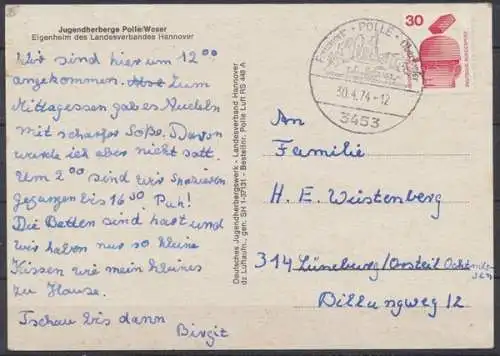 Jugendherberge Polle/Weser
Eigenheim des Landesverbandes Hannover
Wir sind hier um 12 00
angekommen. Zum
Mittagessen gab es Nudeln
mit scharfer Soße. Davon
wurde ich aber nicht satt.
Um 2 00 sind wir spazieren
gegangen bis 16 30. Puh!
Die Betten sind hart und
wir haben nur so kleine
Kissen wie mein kleines
zu Hause.
Tschau bis dann
Birgit
Deutsches Jugendherbergswerk - Landesverband Hannover
dz Luftaufn., gen. SH 1-37131 - Bestellnr. Polle Luft RS 448 A
POLLE
30.4.74-12
3453
30
DEUTSCHE BUNDESPOST
An
Familie
H. E. Wüstenberg
314 Lüneburg/Ortsteil
Billungweg 12